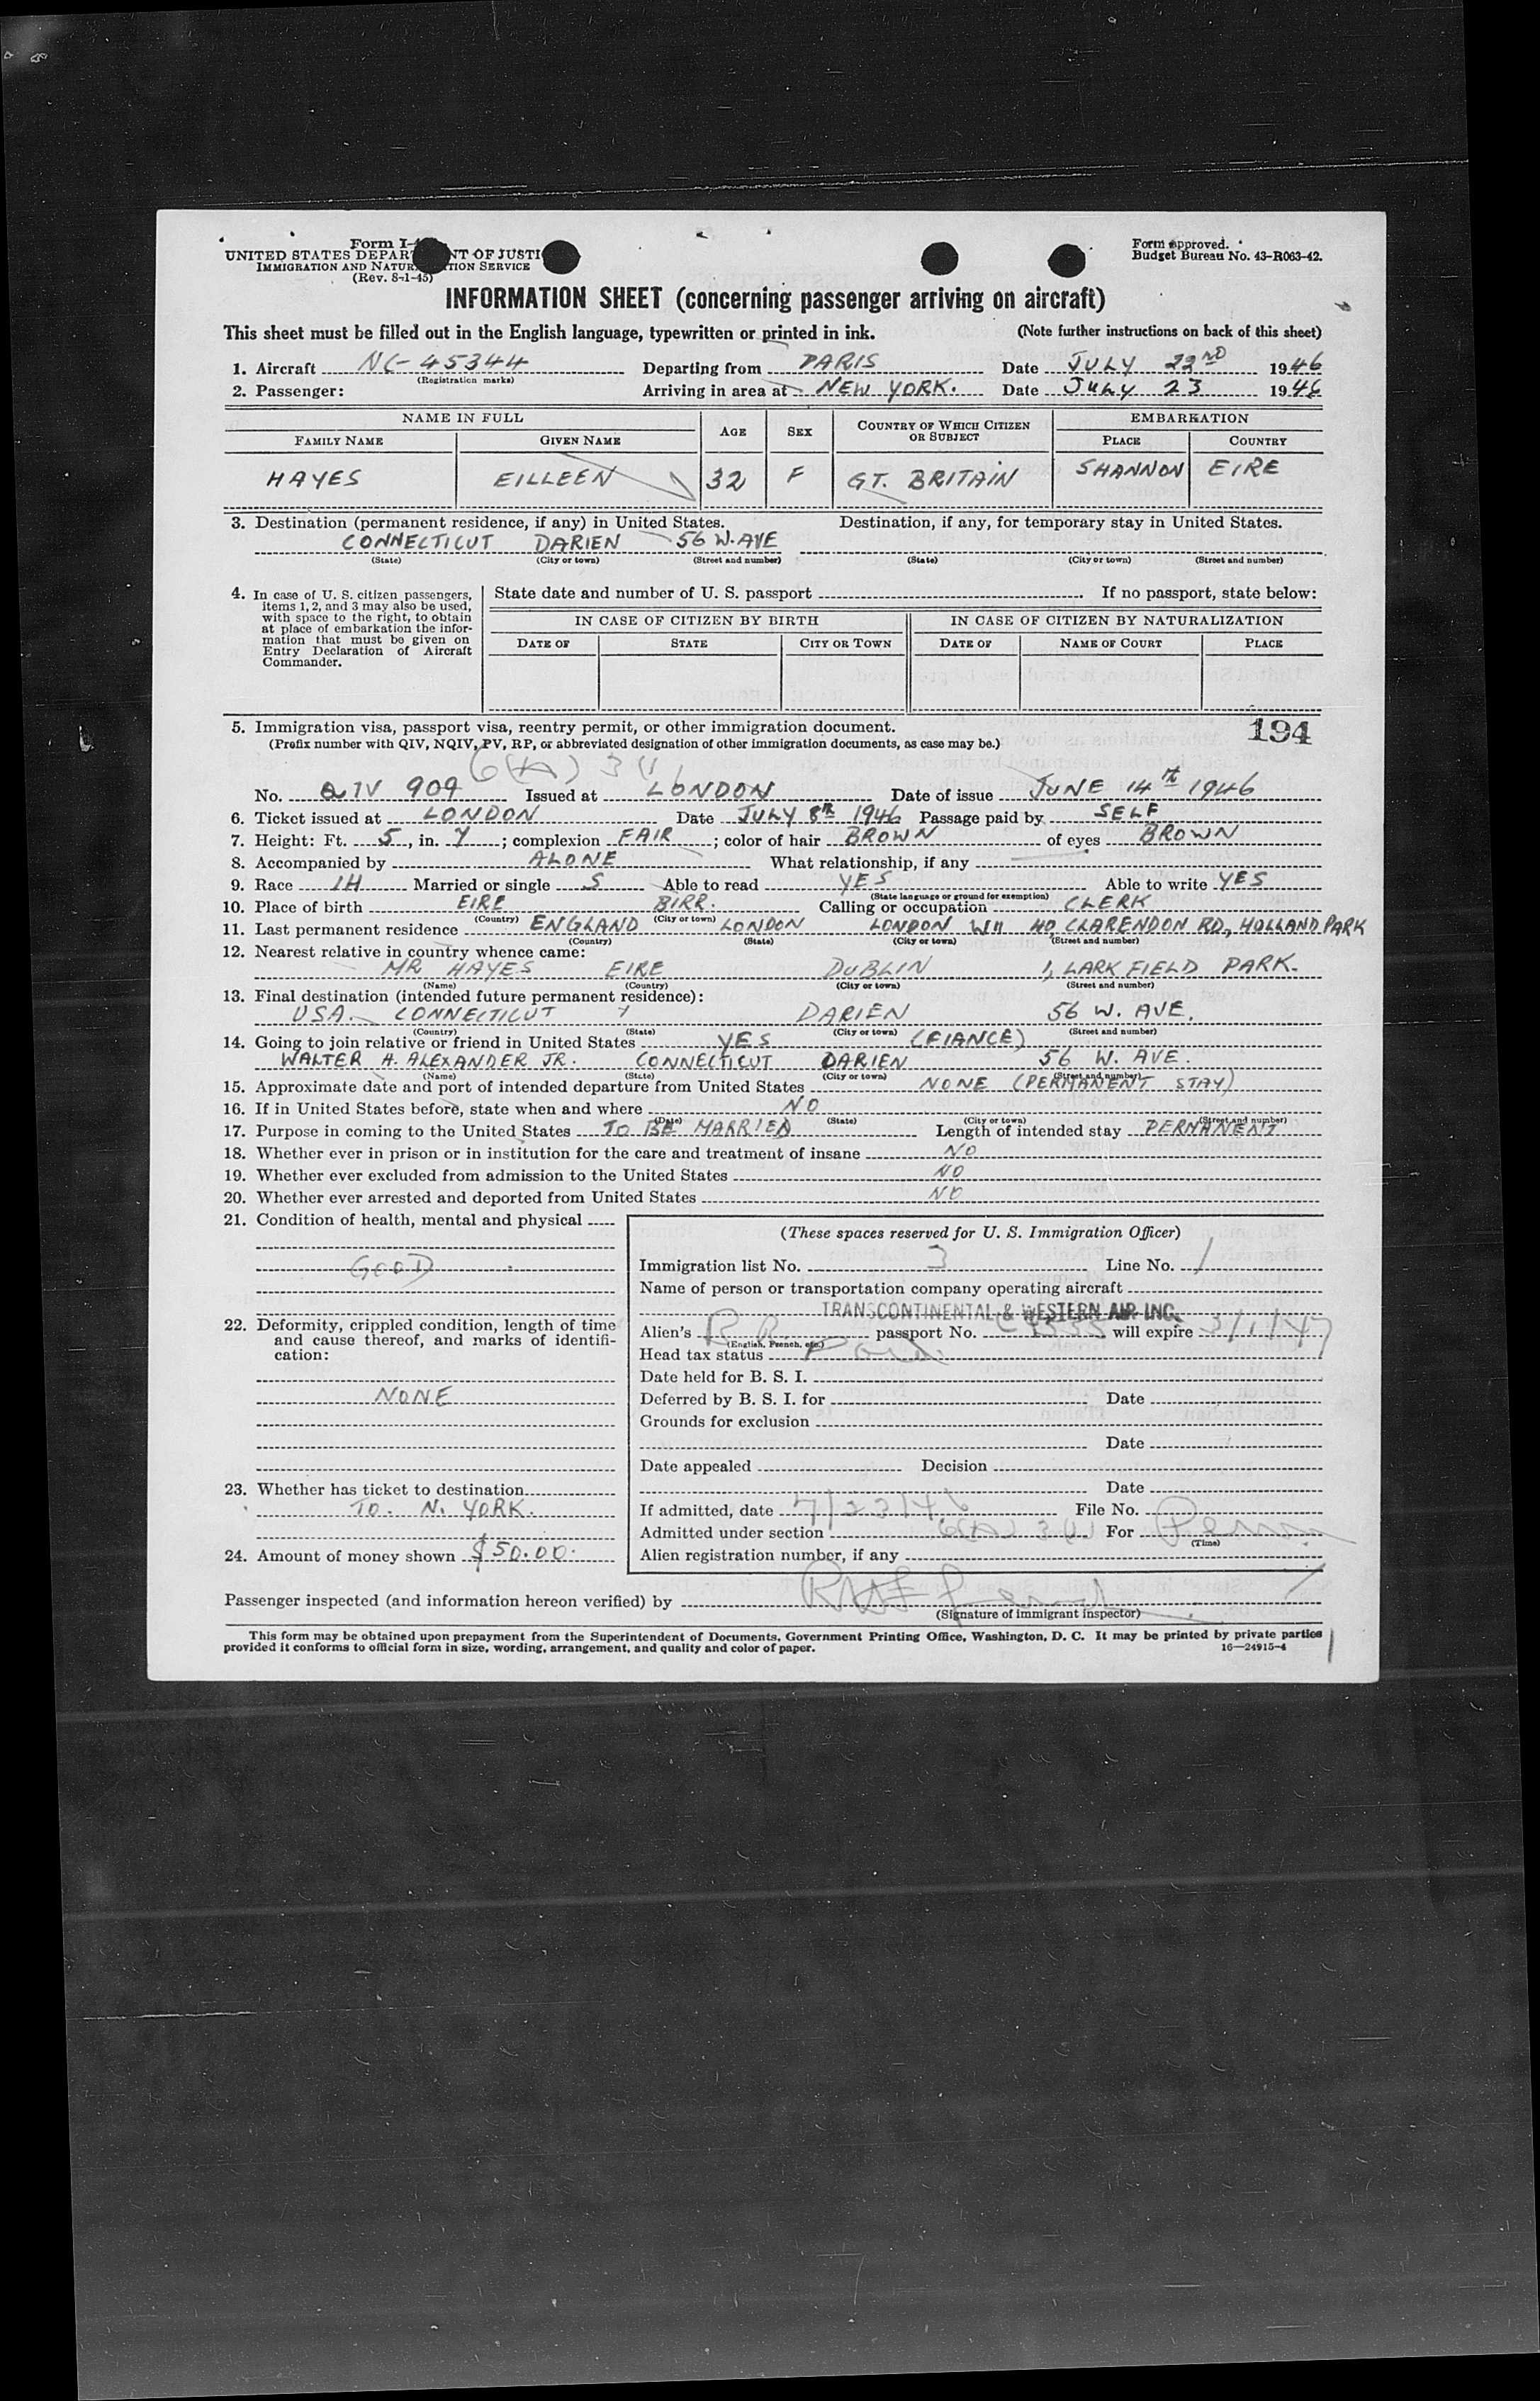 Form I-4
UNITED STATES DEPAR NT OF JUSTI
IMMIGRATION AND NATUR TION SERVICE
(Rev. 8-1-45)
Form approved.
Budget Bureau No. 43-R063-42.
INFORMATION SHEET (concerning passenger arriving on aircraft)
This sheet must be filled out in the English language, typewritten or printed in ink. (Note further instructions on back of this sheet)
1. Aircraft NC-45344 Departing from PARIS Date JULY 22ND 1946
(Registration marks)
2. Passenger: Arriving in area at NEW YORK. Date JULY 23 1946
NAME IN FULL AGE SEX COUNTRY OF WHICH CITIZEN OR SUBJECT EMBARKATION
FAMILY NAME GIVEN NAME PLACE COUNTRY
HAYES EILLEEN 32 F GT. BRITAIN SHANNON EIRE
3. Destination (permanent residence, if any) in United States. Destination, if any, for temporary stay in United States.
CONNECTICUT DARIEN 56 W. AVE
(State) (City or town) (Street and number) (State) (City or town) (Street and number)
4. In case of U. S. citizen passengers,
items 1, 2, and 3 may also be used,
with space to the right, to obtain
at place of embarkation the infor-
mation that must be given on
Entry Declaration of Aircraft
Commander.
State date and number of U. S. passport If no passport, state below:
IN CASE OF CITIZEN BY BIRTH IN CASE OF CITIZEN BY NATURALIZATION
DATE OF STATE CITY OR TOWN DATE OF NAME OF COURT PLACE
5. Immigration visa, passport visa, reentry permit, or other immigration document. 194
(Prefix number with QIV, NQIV, PV, RP, or abbreviated designation of other immigration documents, as case may be.)
6(A) 3(1)
No. QIV 909 Issued at LONDON Date of issue JUNE 14th 1946
6. Ticket issued at LONDON Date JULY 8th 1946 Passage paid by SELF
7. Height: Ft. 5, in. 7; complexion FAIR; color of hair BROWN of eyes BROWN
8. Accompanied by ALONE What relationship, if any
9. Race IH Married or single S Able to read YES Able to write YES
(State language or ground for exemption)
10. Place of birth EIRE BIRR. Calling or occupation CLERK
(Country) (City or town)
11. Last permanent residence ENGLAND LONDON LONDON W11 40 CLARENDON RD, HOLLAND PARK
(Country) (State) (City or town) (Street and number)
12. Nearest relative in country whence came:
MR HAYES EIRE DUBLIN 1, LARKFIELD PARK.
(Name) (Country) (City or town) (Street and number)
13. Final destination (intended future permanent residence):
USA. CONNECTICUT DARIEN 56 W. AVE.
(Country) (State) (City or town) (Street and number)
14. Going to join relative or friend in United States YES (FIANCE)
WALTER H. ALEXANDER JR. CONNECTICUT DARIEN 56 W. AVE.
(Name) (State) (City or town) (Street and number)
15. Approximate date and port of intended departure from United States NONE (PERMANENT STAY)
16. If in United States before, state when and where NO
(Date) (State) (City or town) (Street and number)
17. Purpose in coming to the United States TO BE MARRIED Length of intended stay PERMANENT
18. Whether ever in prison or in institution for the care and treatment of insane NO
19. Whether ever excluded from admission to the United States NO
20. Whether ever arrested and deported from United States NO
21. Condition of health, mental and physical
GOOD
22. Deformity, crippled condition, length of time
and cause thereof, and marks of identifi-
cation:
NONE
23. Whether has ticket to destination
TO. N. YORK.
24. Amount of money shown $50.00.
(These spaces reserved for U. S. Immigration Officer)
Immigration list No. 3 Line No. 1
Name of person or transportation company operating aircraft
TRANSCONTINENTAL & WESTERN AIR INC.
Alien's passport No. will expire 3/1/47
(English, French, etc.)
Head tax status Paid
Date held for B. S. I.
Deferred by B. S. I. for Date
Grounds for exclusion
Date
Date appealed Decision
Date
If admitted, date 7/23/46 File No.
Admitted under section 6(A) 3(1) For Perm
(Time)
Alien registration number, if any
Passenger inspected (and information hereon verified) by
(Signature of immigrant inspector)
This form may be obtained upon prepayment from the Superintendent of Documents, Government Printing Office, Washington, D. C. It may be printed by private parties
provided it conforms to official form in size, wording, arrangement, and quality and color of paper. 16—24915-4